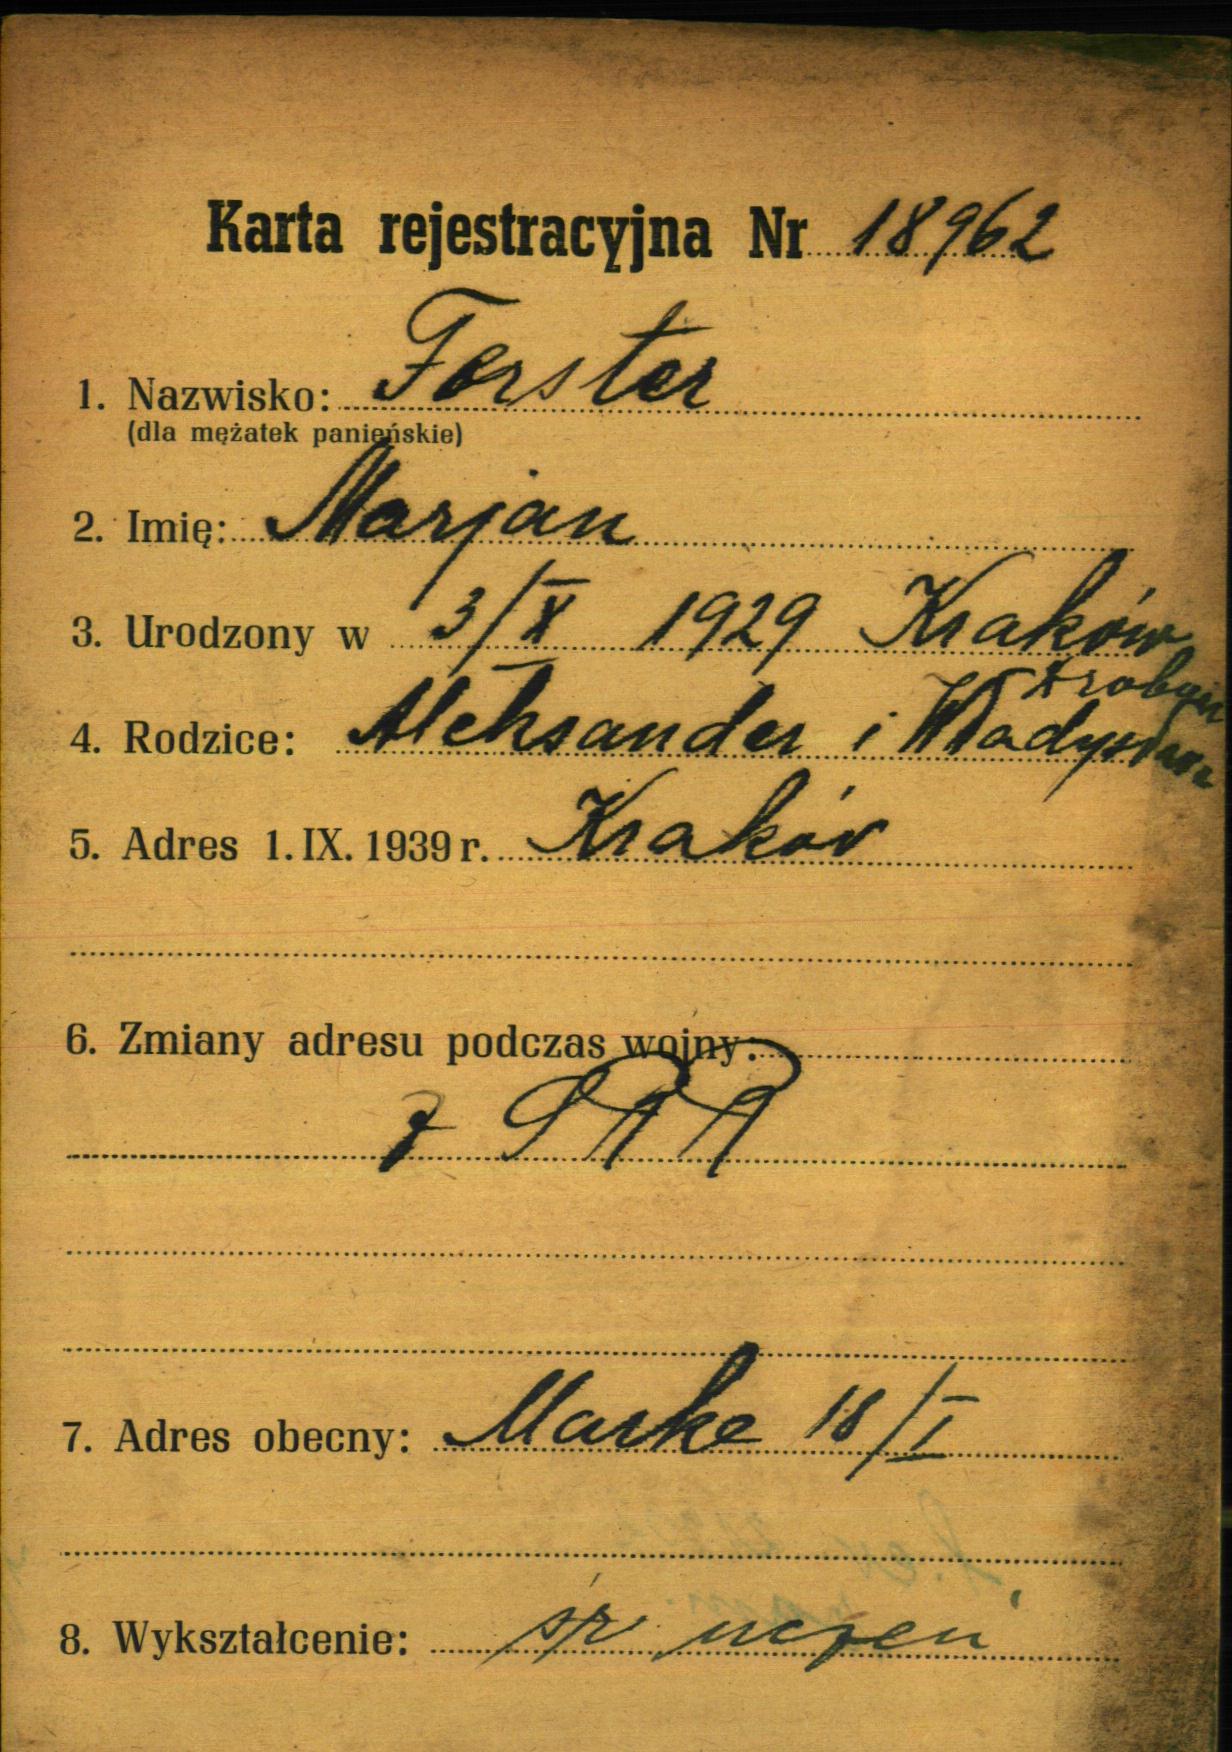 Karta rejestracyjna Nr 18962
1. Nazwisko: Forster
(dla mężatek panieńskie)
2. Imię: Marjan
3. Urodzony w 3/X 1929 Kraków
4. Rodzice: Aleksander i Władysława
5. Adres 1. IX. 1939 r. Kraków
6. Zmiany adresu podczas wojny:
z
7. Adres obecny: 18/I
8. Wykształcenie: śr uczeń